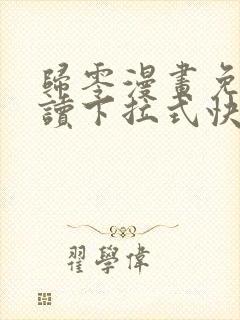 歸零漫畫免
讀下拉式快
翟學偉